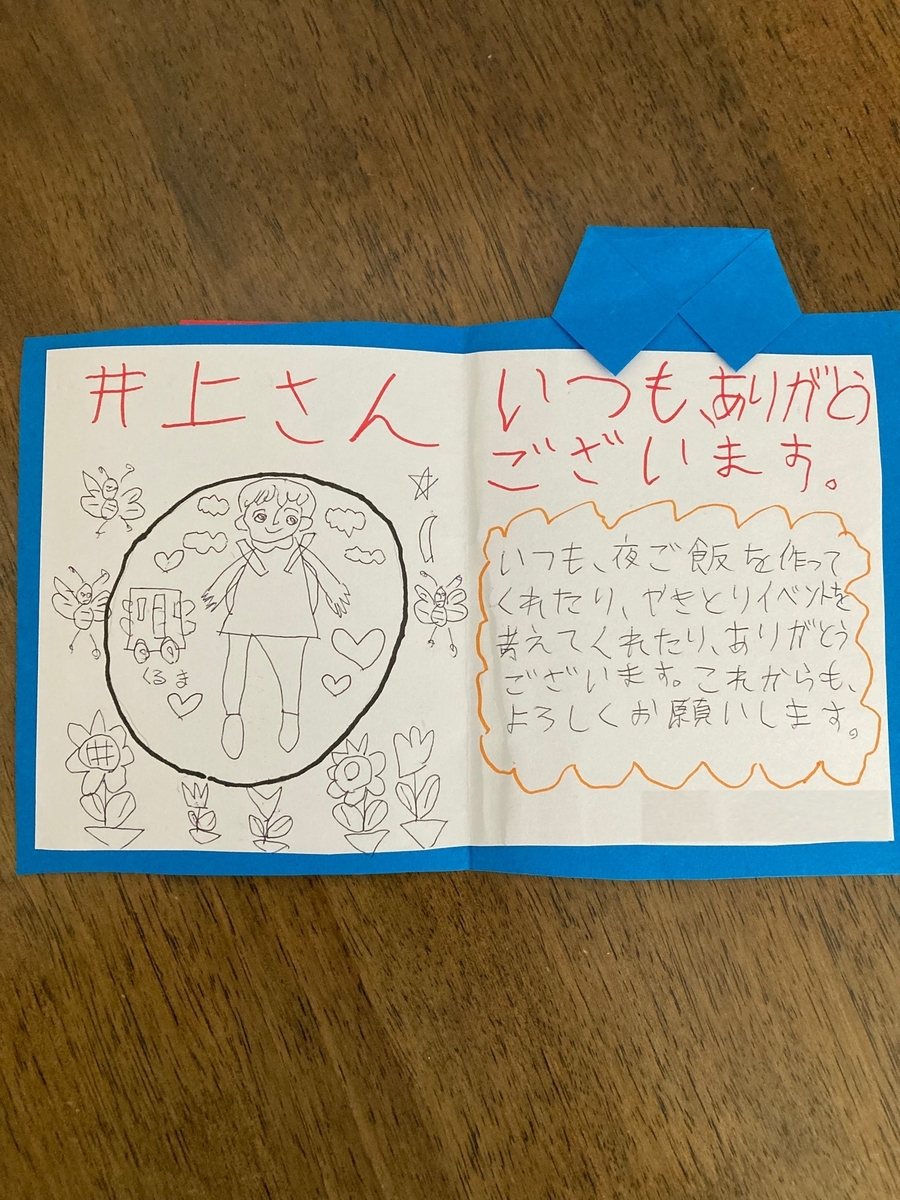 井上さん
くるま
いつも、ありがとう
ございます。
いつも、夜ご飯を作って
くれたり、やきとりイベントを
考えてくれたり、ありがとう
ございます。これからも、
よろしくお願いします。